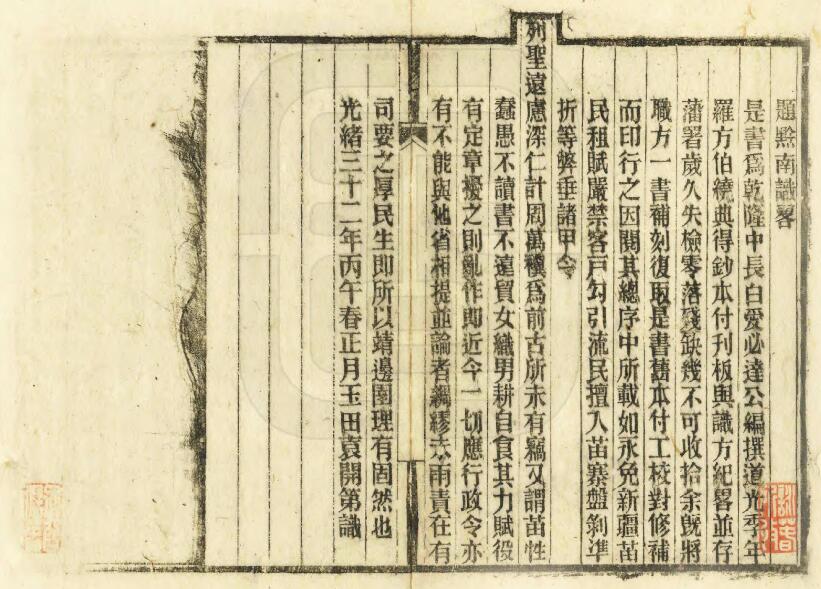 題黔南識畧
是書爲乾隆中長白愛必達公編撰道光季年
羅方伯繞典得鈔本付刊板與識方紀畧並存
藩署歲久失檢零落殘缺幾不可收拾余旣將
職方一書補刻復取是書舊本付工校對修補
而印行之因閱其總序中所載如永免新疆苗
民租賦嚴禁客戸勾引流民擅入苗寨盤剝準
折等弊垂諸甲令
列聖遠慮深仁計周萬禩爲前古所未有竊又謂苗性
蠢愚不讀書不遠貿女織男耕自食其力賦役
有定章擾之則亂作即近今一切應行政令亦
有不能與他省相提並論者綢繆未雨責在有
司要之厚民生即所以靖邊圉理有固然也
光緒三十二年丙午春正月玉田袁開第識